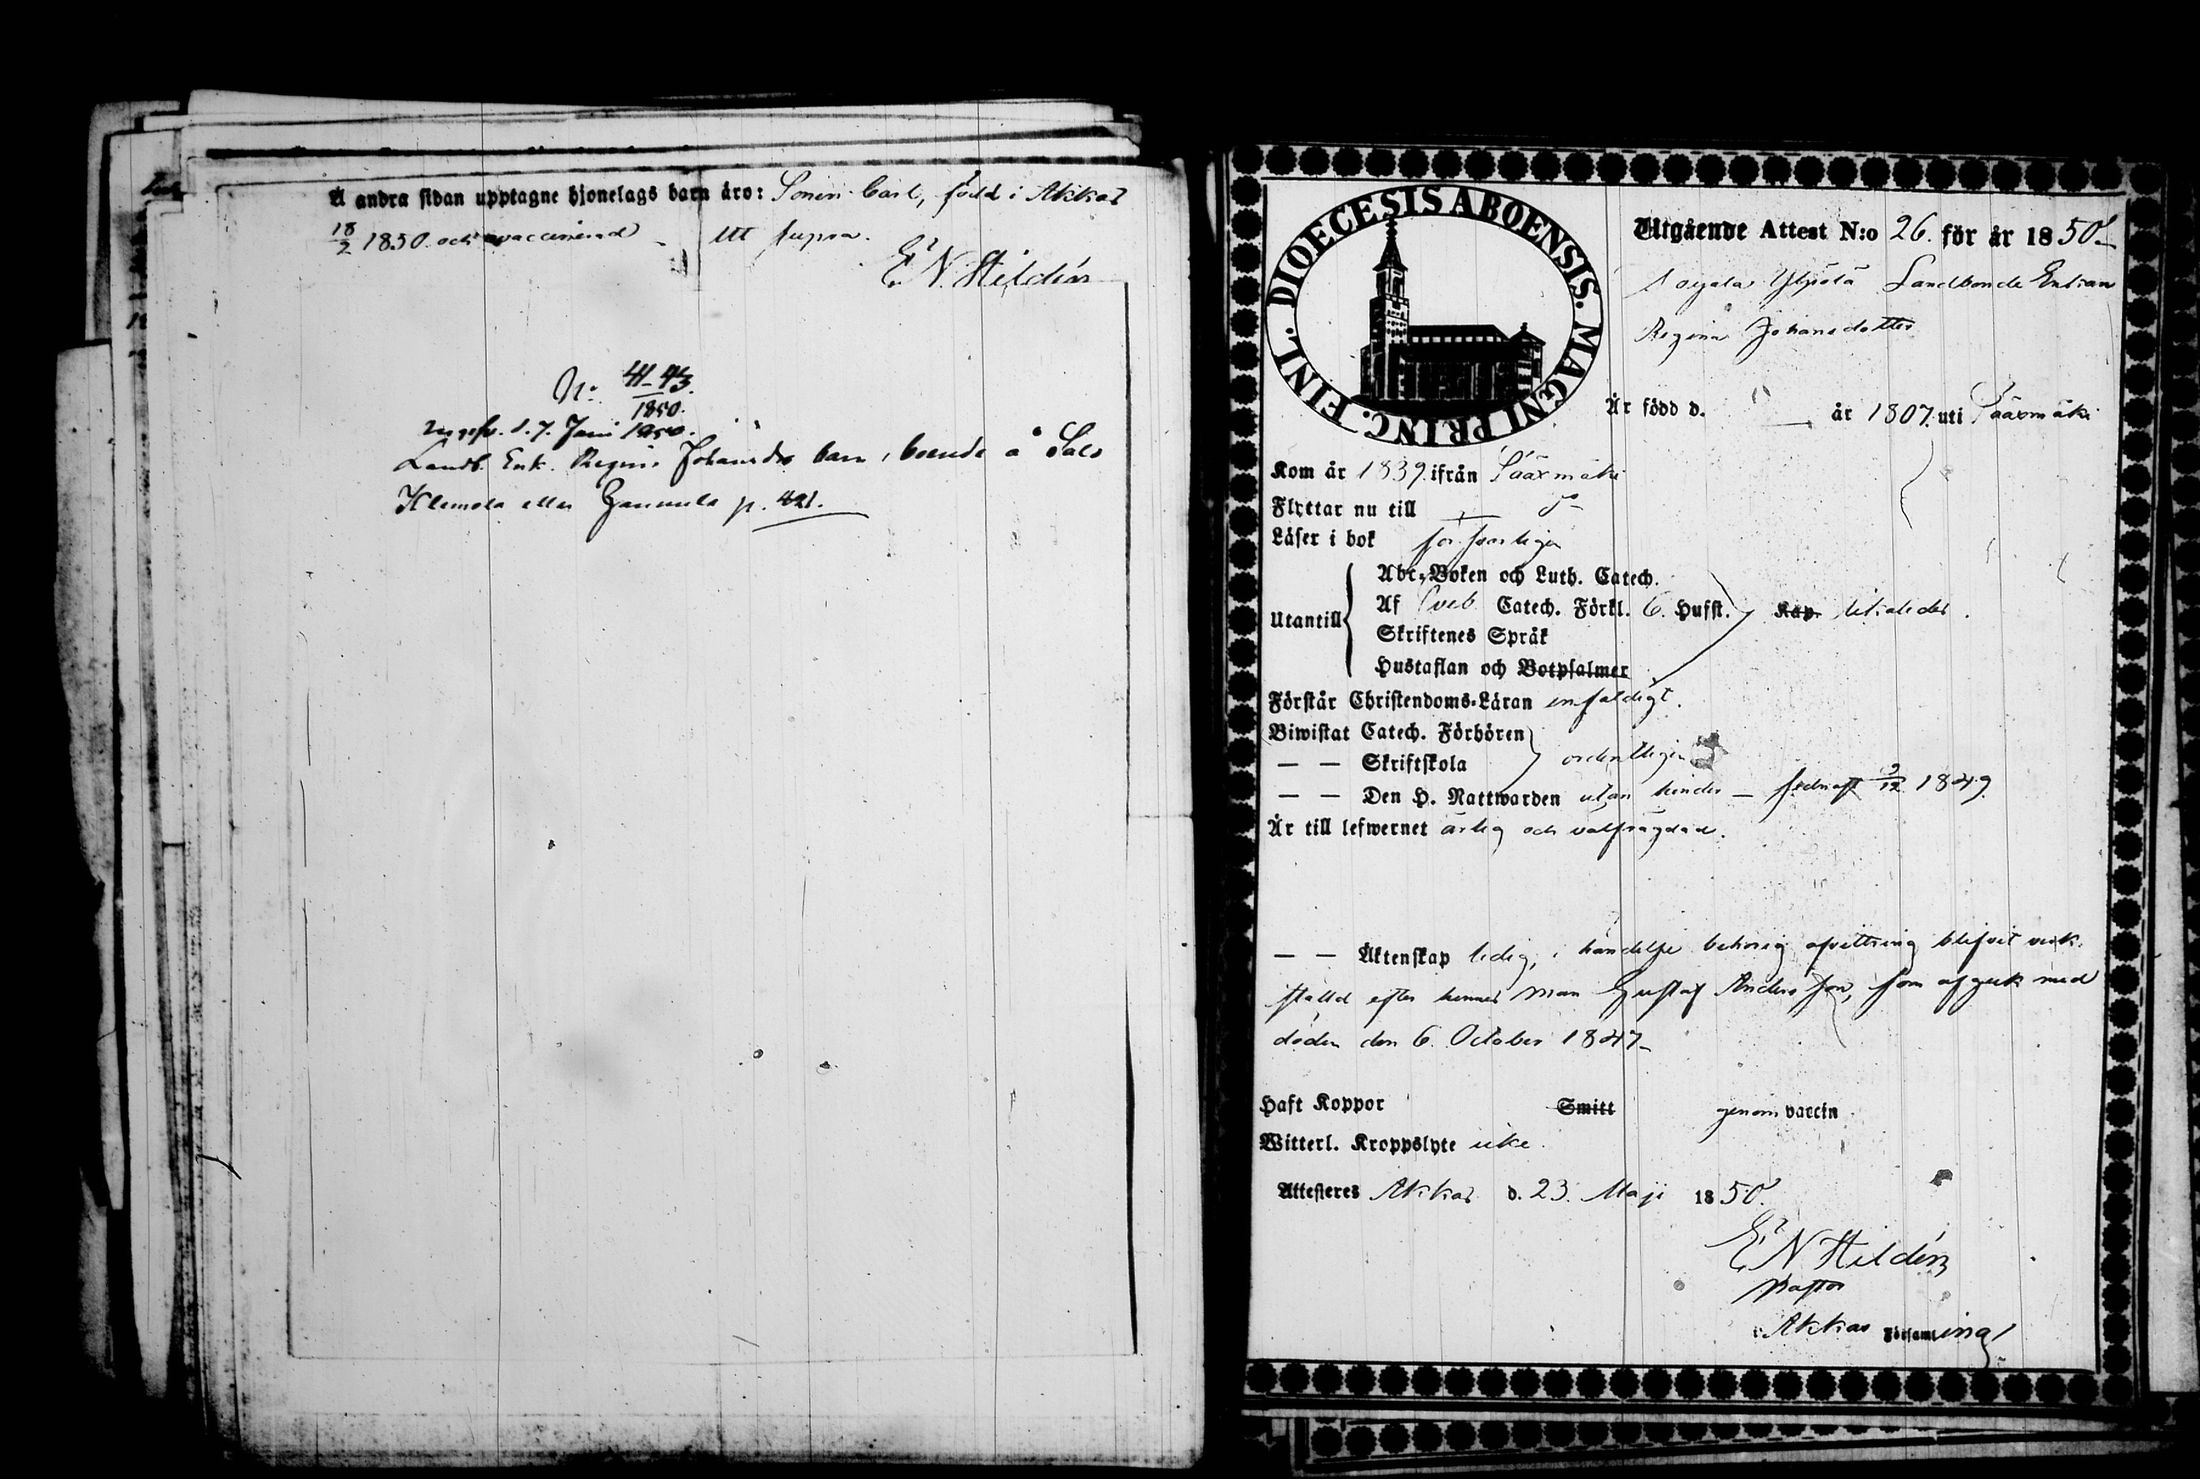 Å andra sidan upptagne hjonelags barn äro: Sonen Carl, född i Akkas
18/2 1850. och ovaccinerad Ut supra.
E. N. Hildén
No 41-43/1850.
d. 7. Juni 1850.
Landb. Enk. Regina Johansdr barn, boende å Salo
Klemola eller p. 421.
DIOECESIS ABOENSIS. MAGNI PRINC. FINL.
Utgående Attest N:o 26. för år 1850
Landbonde Enkan
Regina Johansdotter
Är född d. — år 1807. uti Sääxmäki
Kom år 1839. ifrån Sääxmäki
Flyttar nu till
Läser i bok försvarligen
Abc-Boken och Luth. Catech.
Utantill Af Sveb. Catech. Förkl. 6. Hufst. Kap.
Skriftenes Språk
Hustaflan och Botpsalmer
Förstår Christendoms-Läran enfaldigt.
Biwistat Catech. Förhören
— — Skriftskola ordentligen
— — Den H. Nattwarden utan hinder — sednast 9/12 1849.
Är till lefwernet ärlig och välfrägdad.
— — Äktenskap ledig, i händelse behörig afvittring blifvit verk-
ställd efter hennes man Gustaf Andersson, som afgick med
döden den 6. October 1847-
Haft Koppor Smitt genom vaccin
Witterl. Kroppslyte icke.
Attesteres Akkas d. 23. Maji 1850.
E. N. Hildén
Pastor
i Akkas Församling